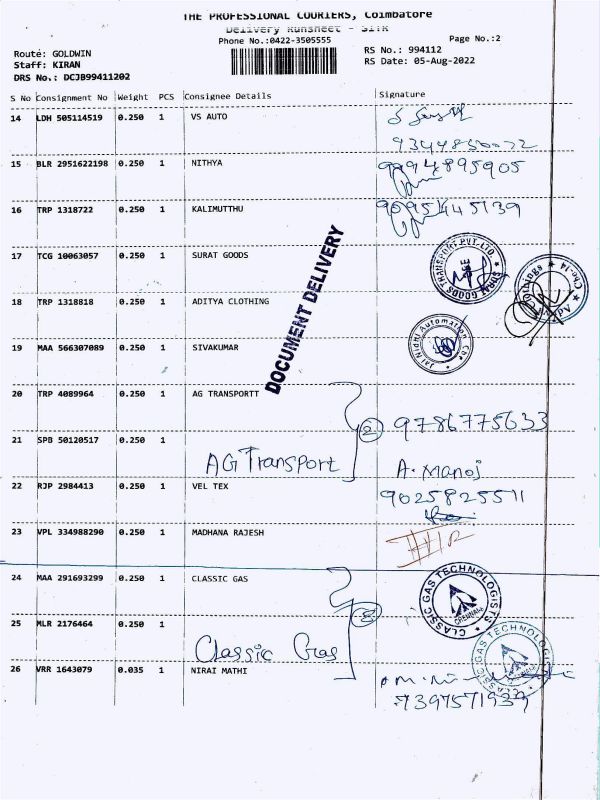 THE PROFESSIONAL COURIERS, Coimbatore
Delivery Runsheet -
Phone No.:0422-3505555 Page No.:2
Route: GOLDWIN RS No.: 994112
Staff: KIRAN RS Date: 05-Aug-2022
DRS No.: DCJB99411202
S No Consignment No Weight PCS Consignee Details Signature
14 LDH 505114519 0.250 1 VS AUTO
15 BLR 2951622198 0.250 1 NITHYA 9994895905
16 TRP 1318722 0.250 1 KALIMUTTHU
17 TCG 10063057 0.250 1 SURAT GOODS
SURAT GOODS TRANSPORT PVT. LTD.
18 TRP 1318818 0.250 1 ADITYA CLOTHING
DOCUMENT DELIVERY
19 MAA 566307089 0.250 1 SIVAKUMAR
Jai Nidhi Automation Cbe
20 TRP 4089964 0.250 1 AG TRANSPORTT
2 9786775633
21 SPB 50120517 0.250 1
AG Transport A. Manoj
22 RJP 2984413 0.250 1 VEL TEX 9025825511
23 VPL 334988290 0.250 1 MADHANA RAJESH
24 MAA 291693299 0.250 1 CLASSIC GAS
CLASSIC GAS TECHNOLOGISTS CHENNAI
25 MLR 2176464 0.250 1
Classic Gas
CLASSIC GAS TECHNOLOGISTS
26 VRR 1643079 0.035 1 NIRAI MATHI
7397571939